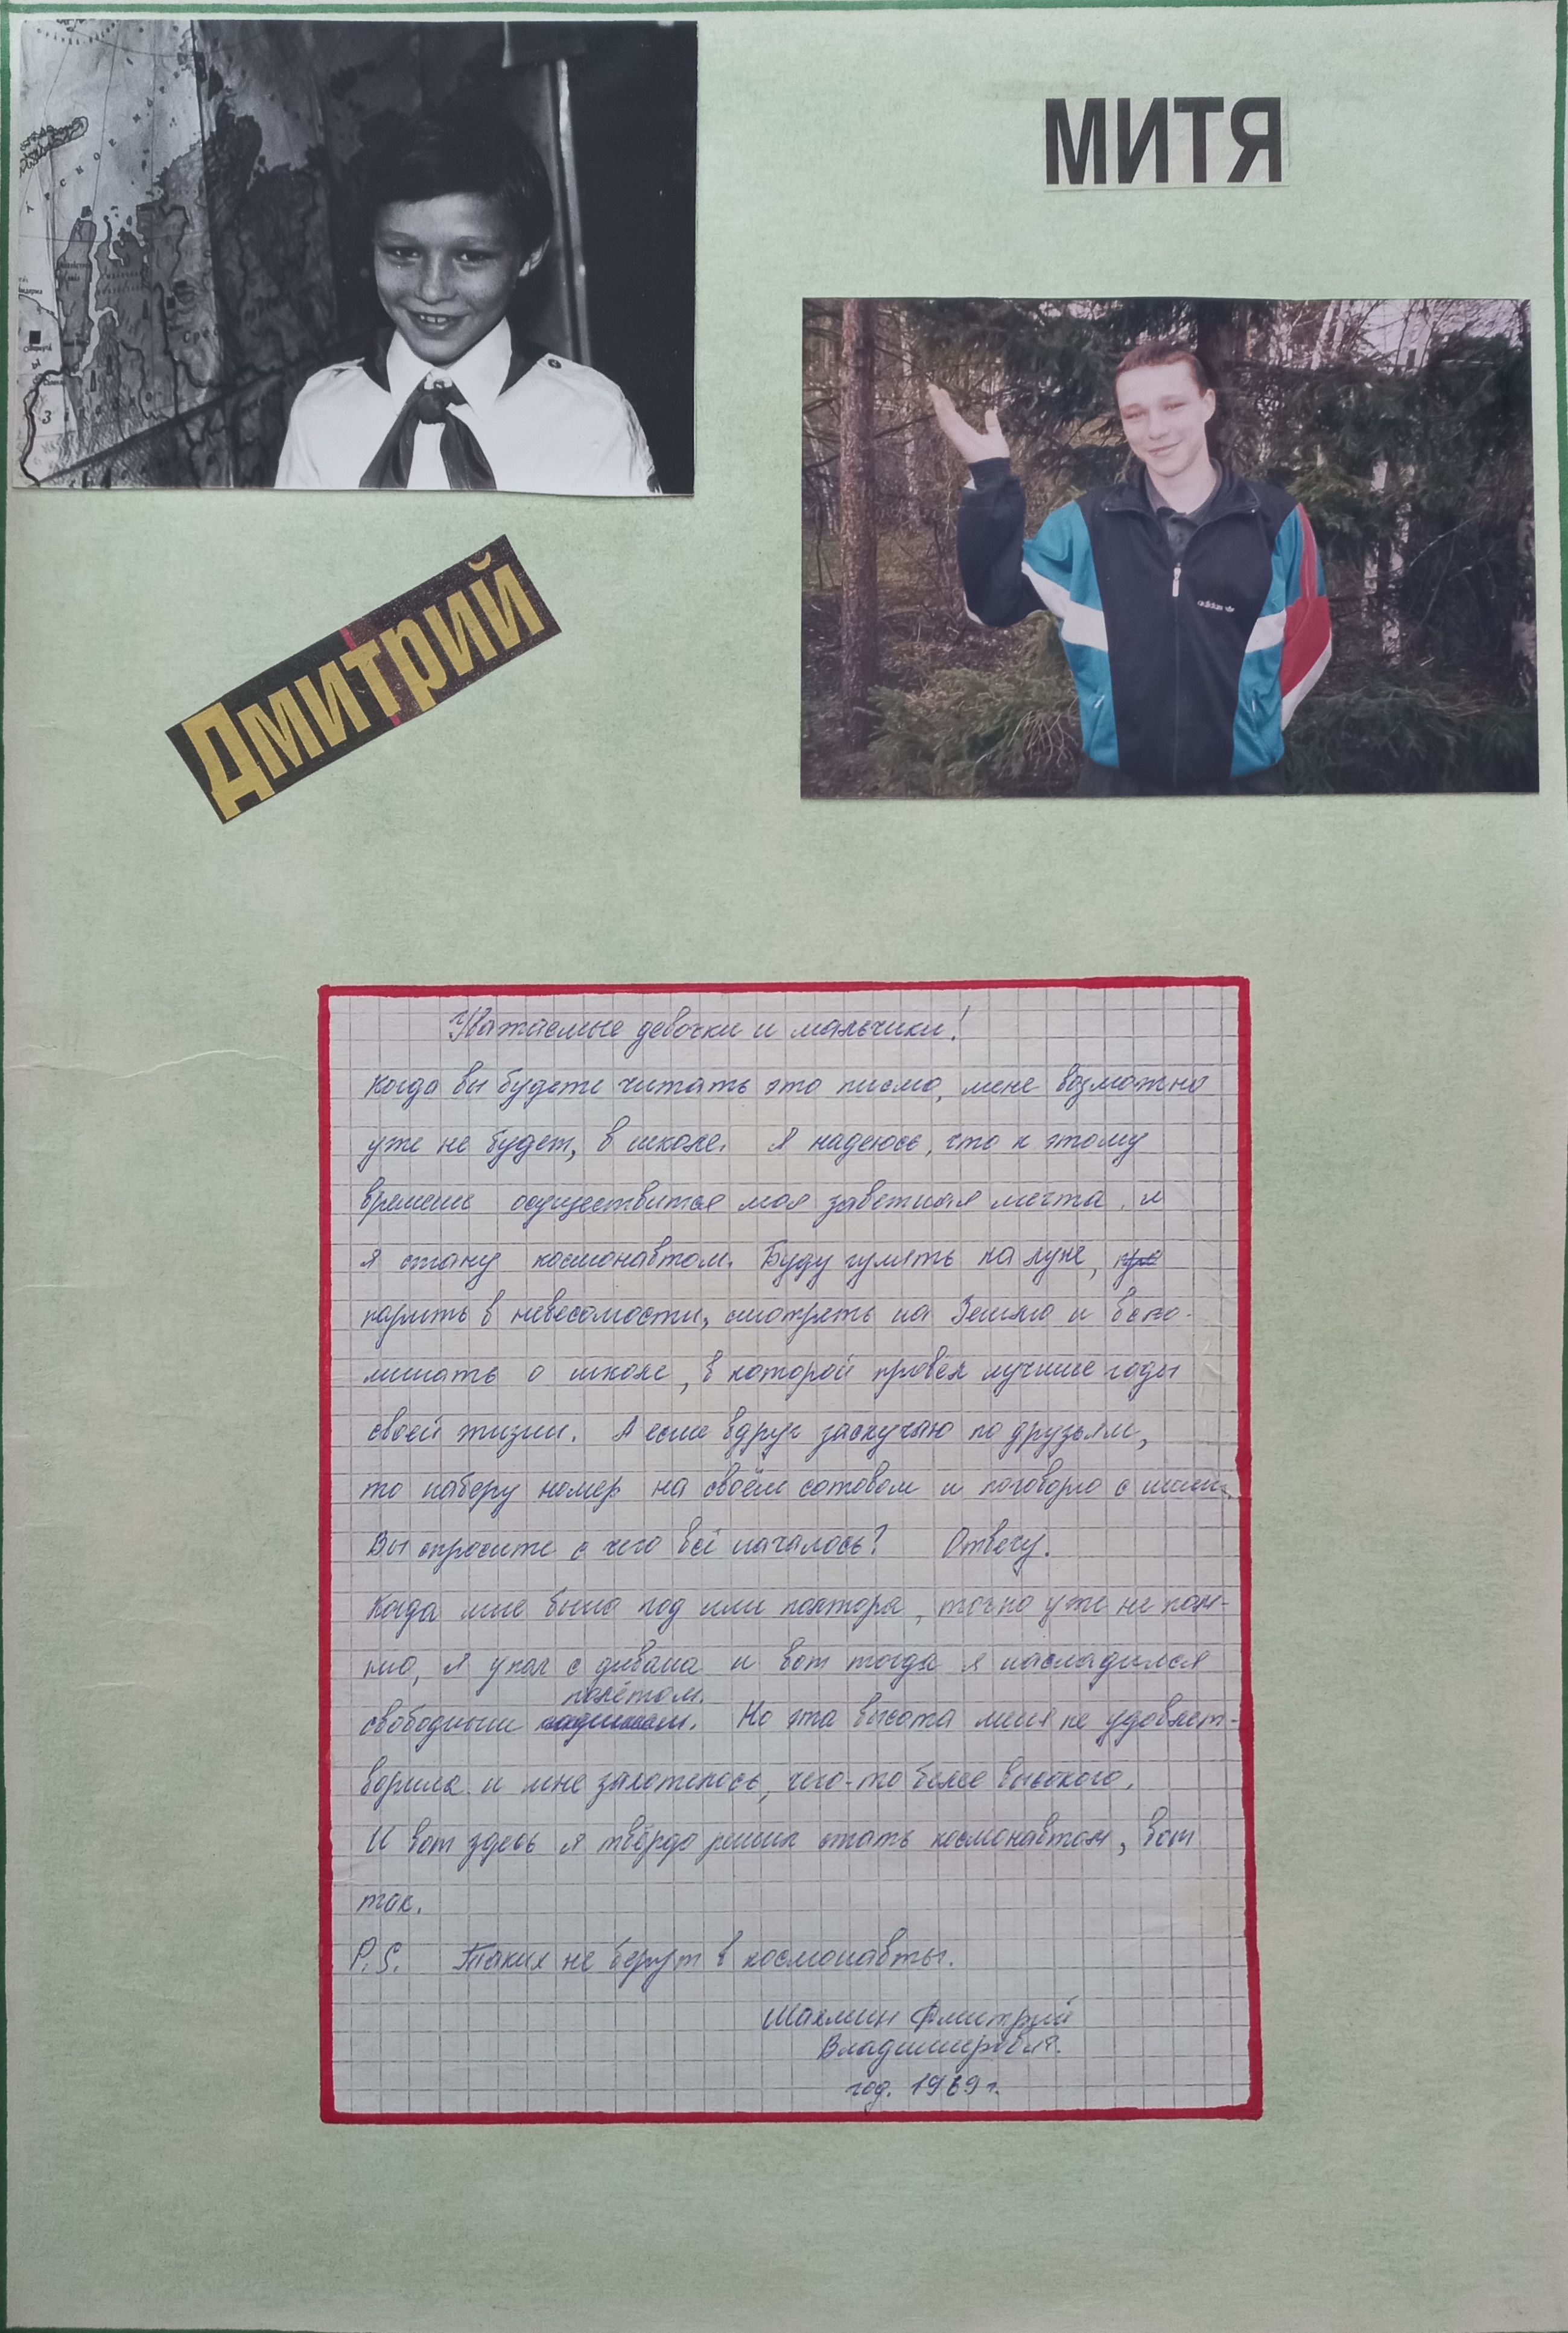 МИТЯ
adidas
Дмитрий
Уважаемые девочки и мальчики!
Когда вы будете читать это писмо, мене возможно
уже не будет, в школе. Я надеюсь, что к этому
времени осуществится моя заветная мечта, и
я стану космонавтом. Буду гулять на луне,
парить в невесомости, смотреть на Землю и вспо-
минать о школе, в которой провёл лучшие годы
своей жизни. А если вдруг заскучаю по друзьям,
то наберу номер на своём сотовом и поговорю с ними.
Вы спросите с чего всё началось? Отвечу.
Когда мне было год или полтора, точно уже не пом-
ню, я упал с дивана и вот тогда я насладился
полётом.
свободным Но эта высота меня не удовлет-
ворила и мне захотелось, чего-то более высокого.
И вот здесь я твёрдо решил стать космонавтом, вот
так.
P.S. Таких не берут в космонавты.
Дмитрий
год.